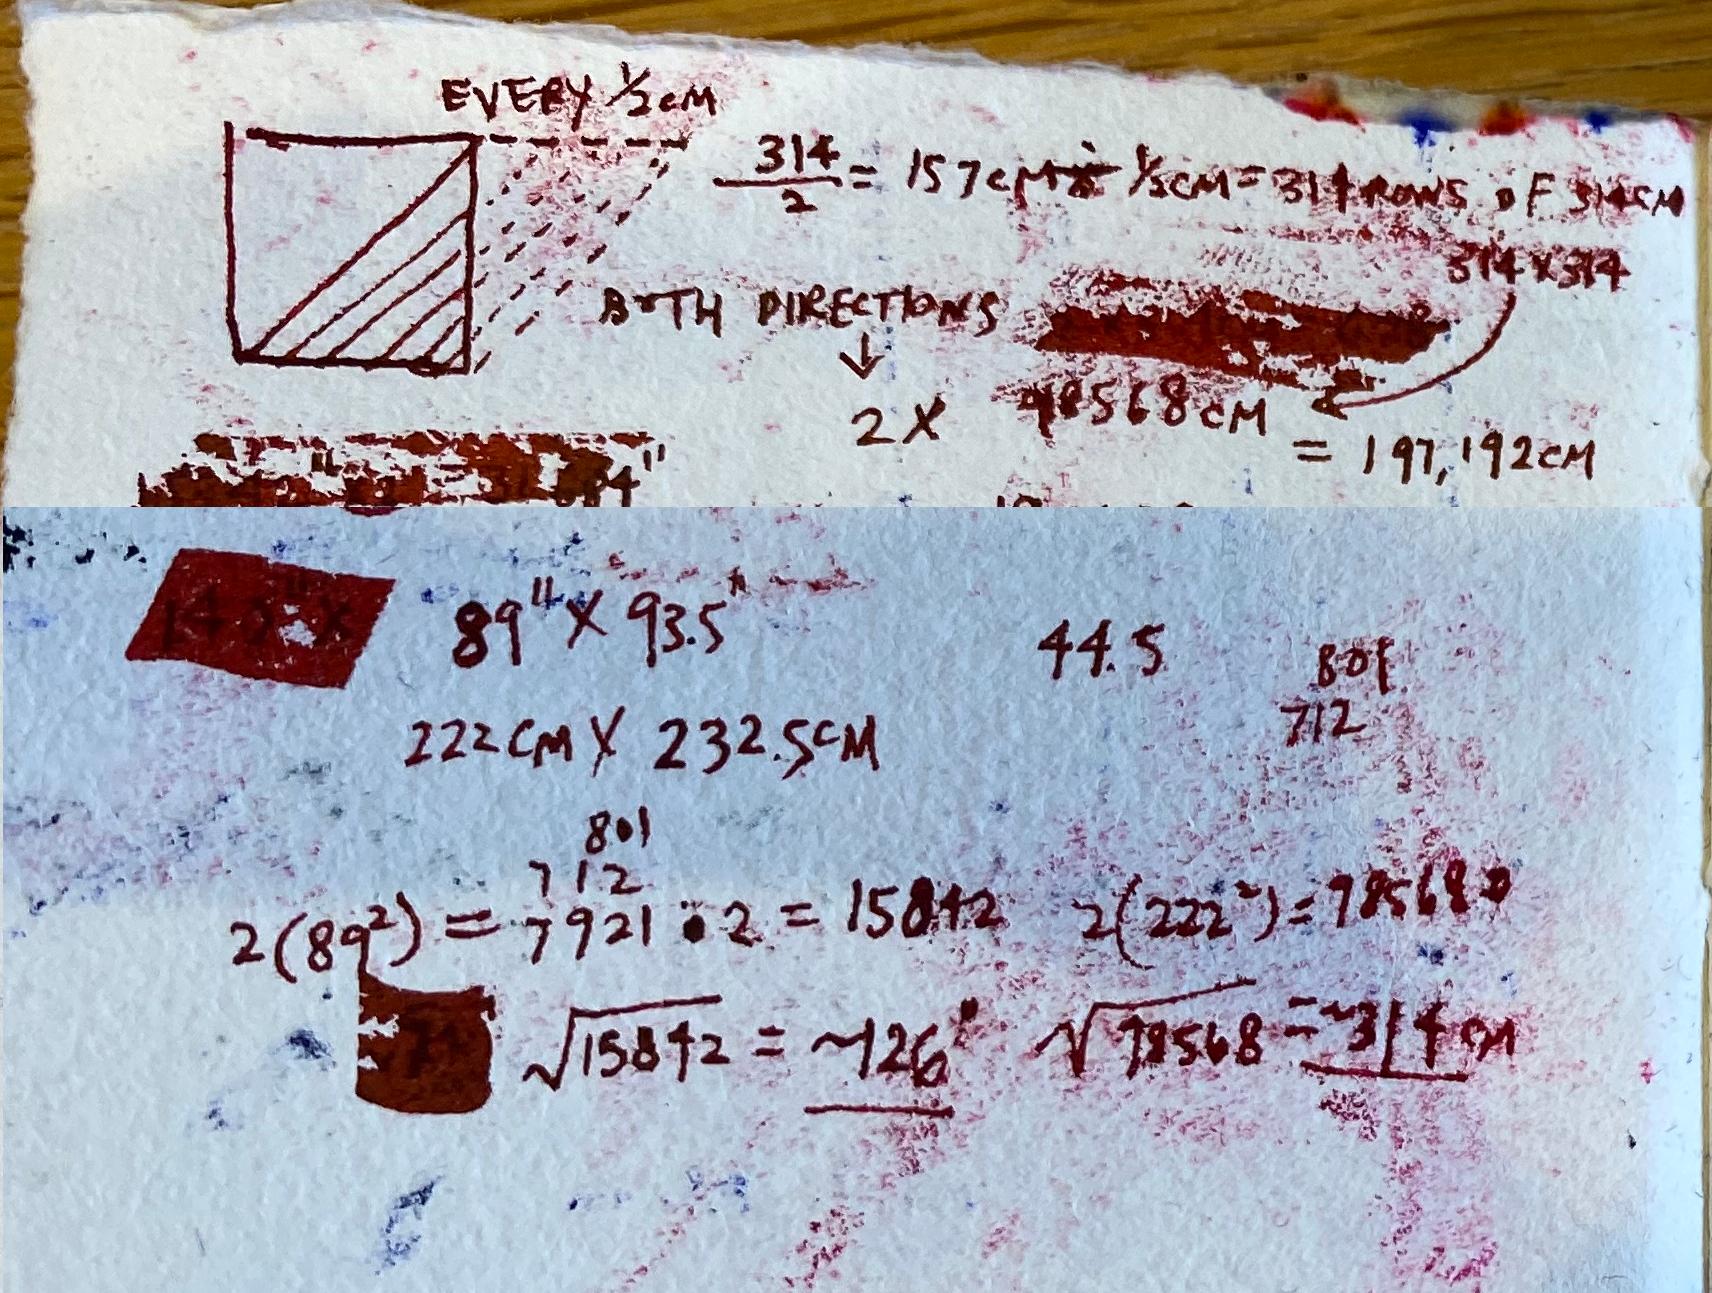 EVERY ½ CM
314/2 = 157 CM ÷ ½ CM = 314 ROWS OF 314 CM
314 X 314
BOTH DIRECTIONS
↓
2 X 98568 CM
= 197,192 CM
89" X 93.5"
44.5
801
712
222 CM X 232.5 CM
801
712
2(89²) = 7921 • 2 = 15842
2(222²) = 98568
√15842 = ~126"
√98568 = ~314 CM